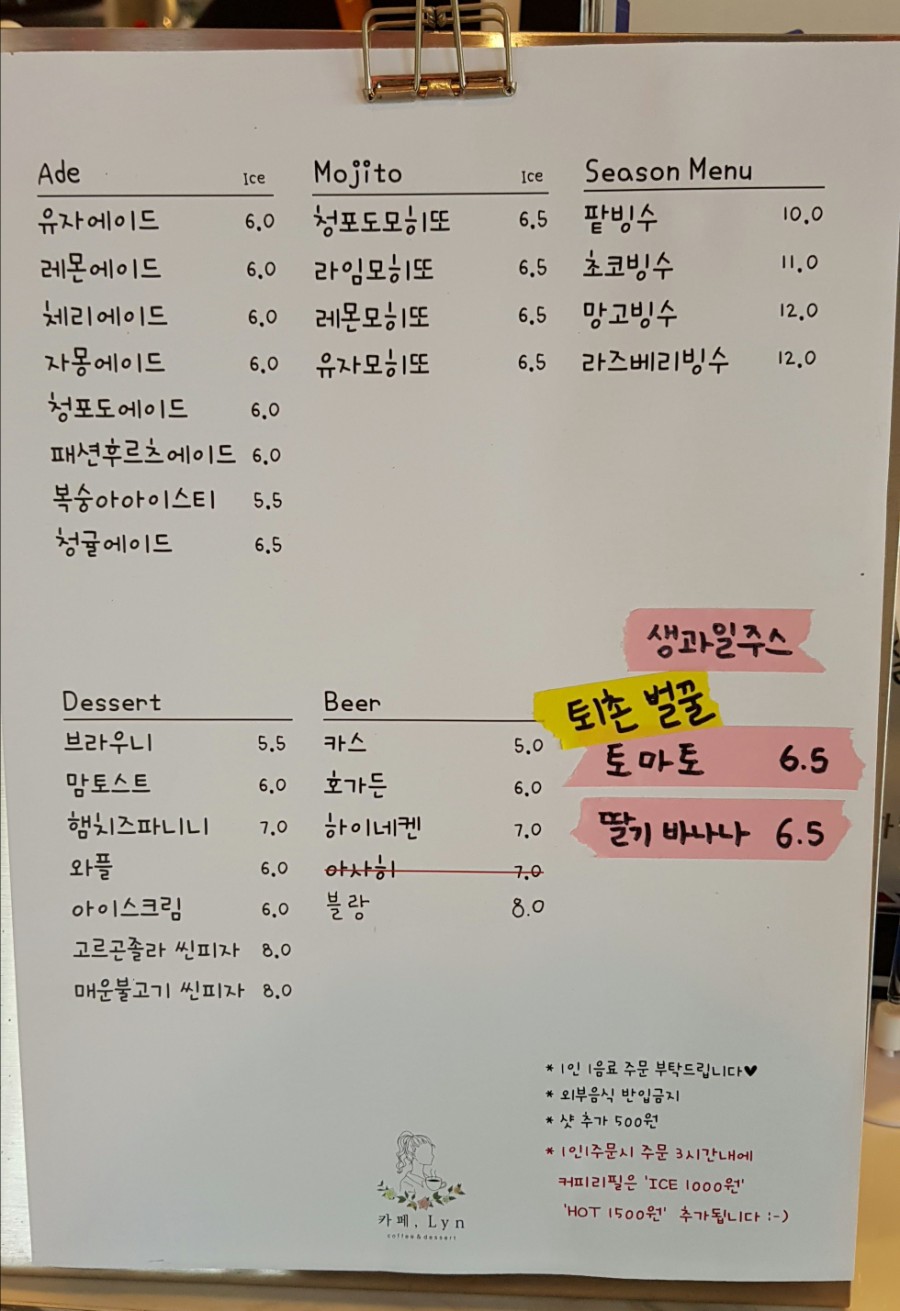 Ade Ice
유자에이드 6.0
레몬에이드 6.0
체리에이드 6.0
자몽에이드 6.0
청포도에이드 6.0
패션후르츠에이드 6.0
복숭아아이스티 5.5
청귤에이드 6.5
Mojito Ice
청포도모히또 6.5
라임모히또 6.5
레몬모히또 6.5
유자모히또 6.5
Season Menu
팥빙수 10.0
초코빙수 11.0
망고빙수 12.0
라즈베리빙수 12.0
Dessert
브라우니 5.5
맘토스트 6.0
햄치즈파니니 7.0
와플 6.0
아이스크림 6.0
고르곤졸라 씬피자 8.0
매운불고기 씬피자 8.0
Beer
카스 5.0
호가든 6.0
하이네켄 7.0
아사히 7.0
블랑 8.0
생과일주스
퇴촌 벌꿀
토마토 6.5
딸기 바나나 6.5
* 1인 1음료 주문 부탁드립니다♥
* 외부음식 반입금지
* 샷 추가 500원
* 1인1주문시 주문 3시간내에
커피리필은 'ICE 1000원'
'HOT 1500원' 추가됩니다 :-)
카페, Lyn
coffee&dessert